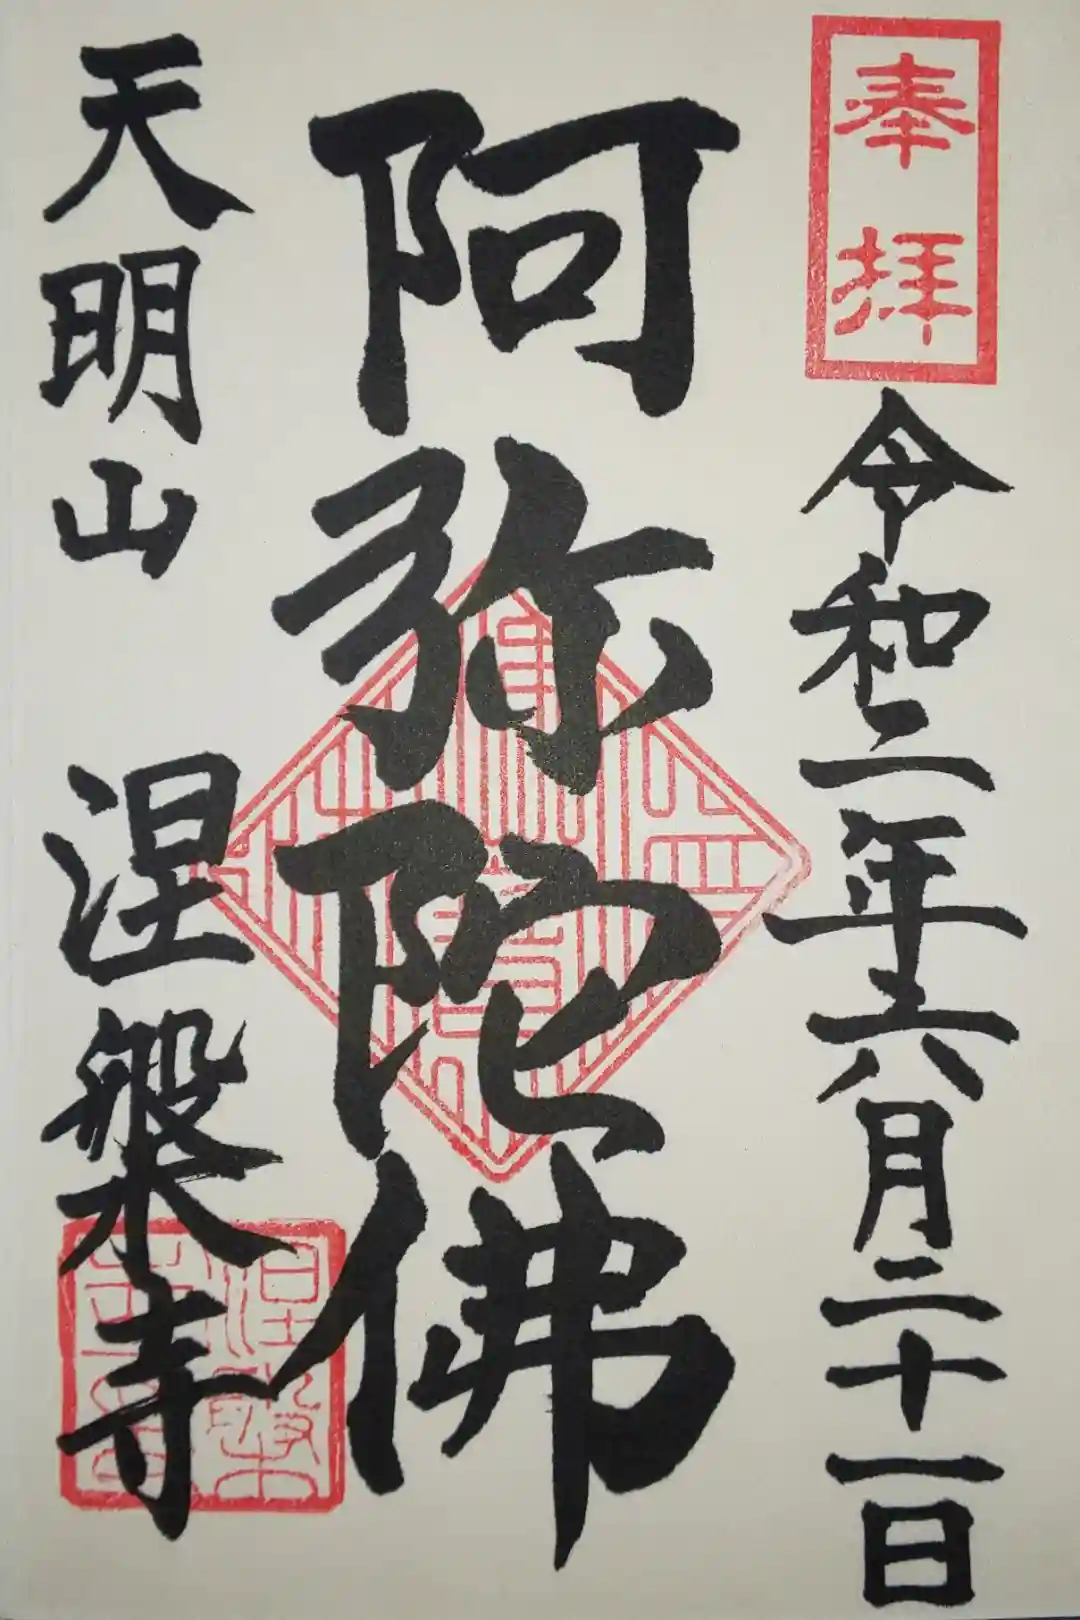 奉拝
令和二年六月二十一日
阿弥陀佛
天明山 涅槃寺